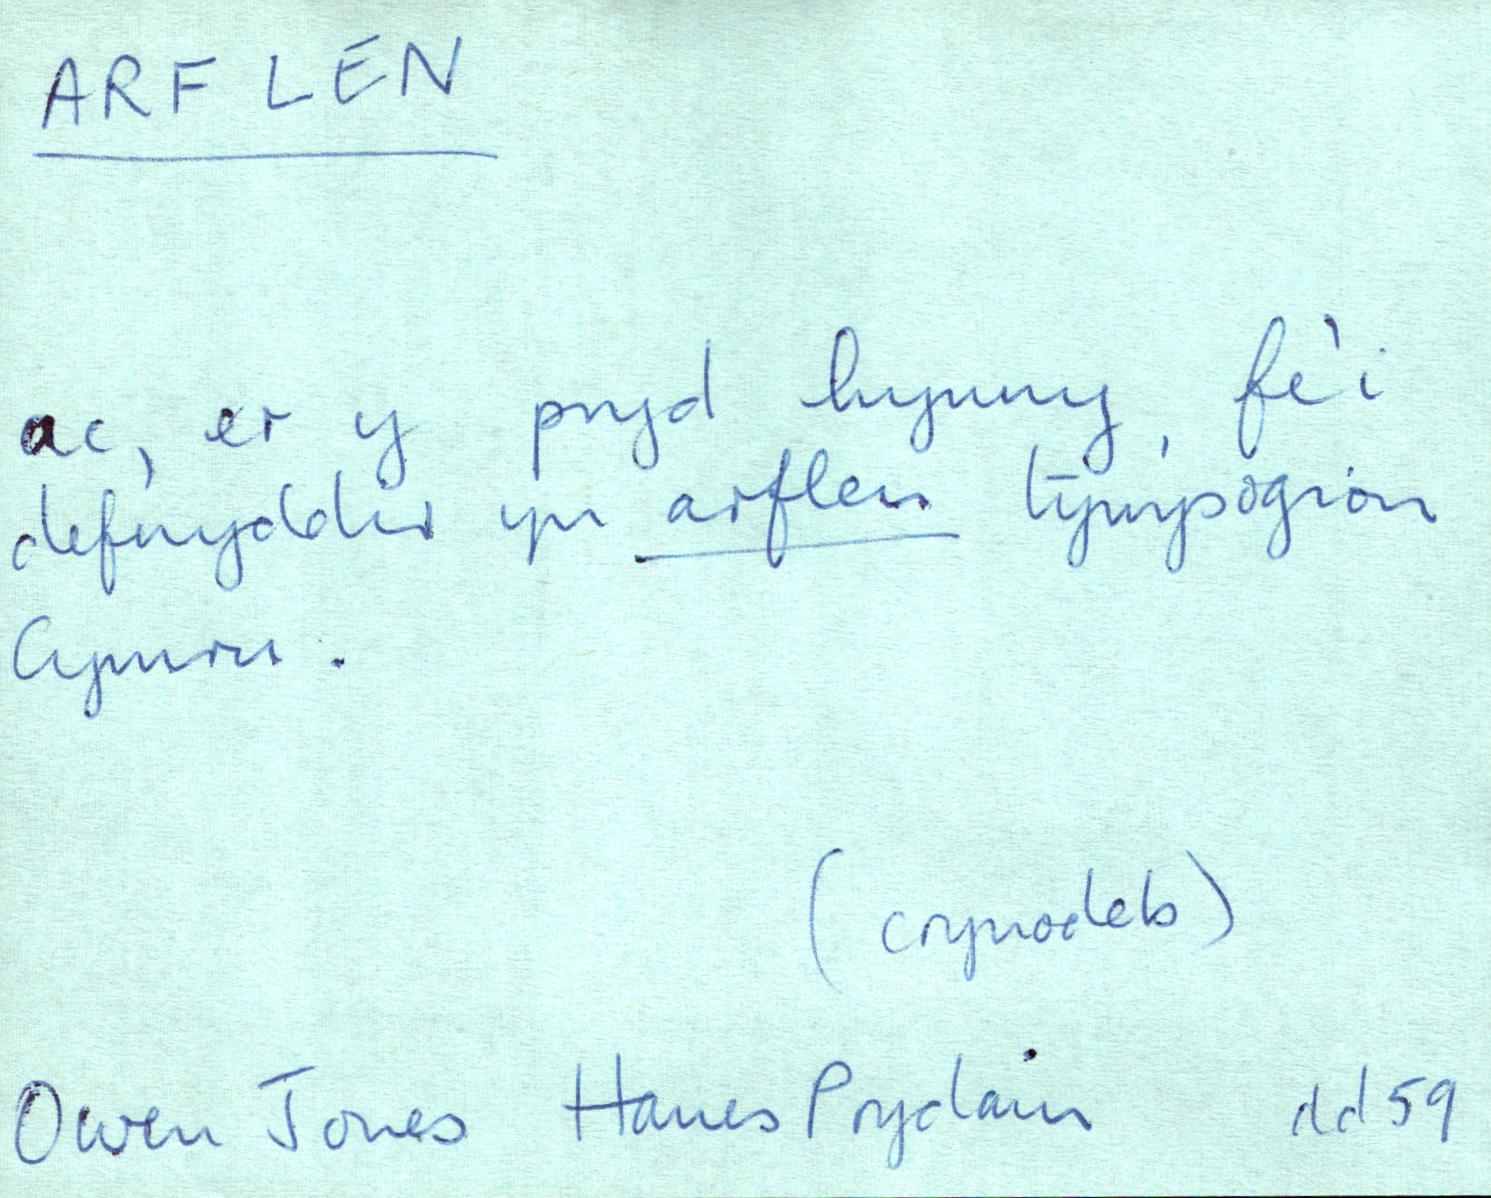 ARFLEN
ac, er y pryd hynny, fe'i
defnyddir yn arflen tywysogion
Cymru.
(crynodeb)
Owen Jones Hanes Prydain dd 59